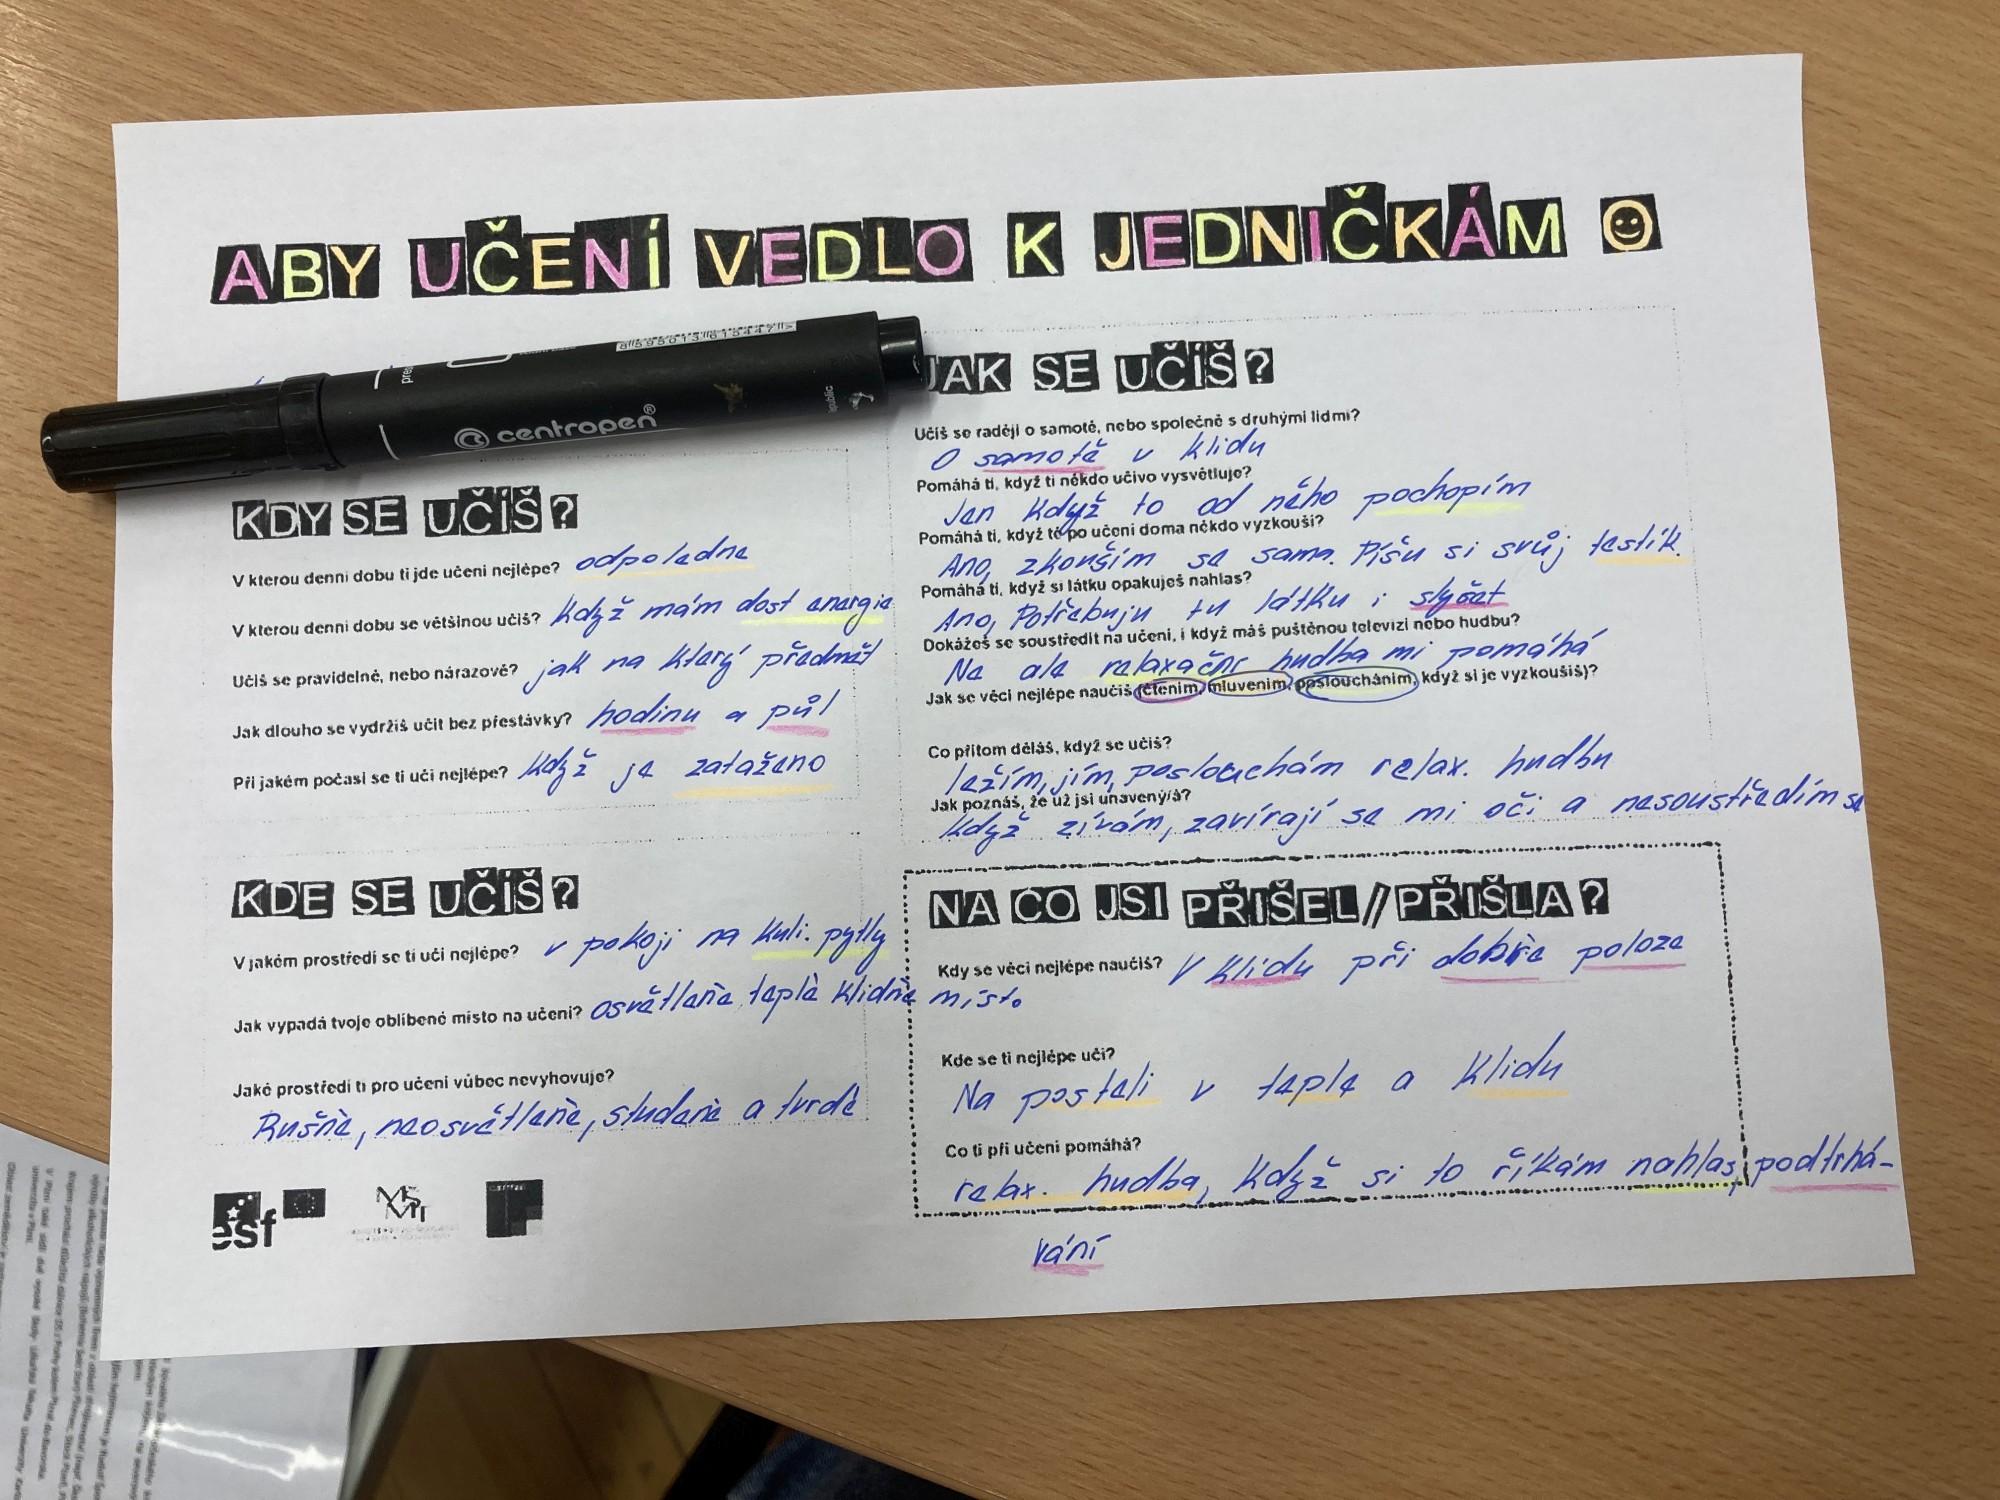 ABY UČENÍ VEDLO K JEDNIČKÁM
centropen®
8 595013 615447
KDY SE UČÍŠ?
V kterou denní dobu ti jde učení nejlépe? odpoledne
V kterou denní dobu se většinou učíš? Když mám dost energie
Učíš se pravidelně, nebo nárazově? jak na který předmět
Jak dlouho se vydržíš učit bez přestávky? hodinu a půl
Při jakém počasí se ti učí nejlépe? Když je zataženo
KDE SE UČÍŠ?
V jakém prostředí se ti učí nejlépe? v pokoji na kuli. pytly
Jak vypadá tvoje oblíbené místo na učení? osvětlené, teplé klidné místo
Jaké prostředí ti pro učení vůbec nevyhovuje?
Rušné, neosvětlené, studené a tvrdé
esf
JAK SE UČÍŠ?
Učíš se raději o samotě, nebo společně s druhými lidmi?
O samotě v klidu
Pomáhá ti, když ti někdo učivo vysvětluje?
Jen Když to od něho pochopím
Pomáhá ti, když tě po učení doma někdo vyzkouší?
Ano, zkouším se sama. Píšu si svůj testík.
Pomáhá ti, když si látku opakuješ nahlas?
Ano, Potřebuju tu látku i slyšet
Dokážeš se soustředit na učení, i když máš puštěnou televizi nebo hudbu?
Ne ale relaxační hudba mi pomáhá
Jak se věci nejlépe naučíš (čtením, mluvením, posloucháním, když si je vyzkoušíš)?
Co přitom děláš, když se učíš?
ležím, jím, poslouchám relax. hudbu
Jak poznáš, že už jsi unavený/á?
Když zívám, zavírají se mi oči a nesoustředím se
NA CO JSI PŘIŠEL//PŘIŠLA?
Kdy se věci nejlépe naučíš? V klidu při dobře poloze
Kde se ti nejlépe učí?
Na posteli v teple a Klidu
Co ti při učení pomáhá?
relax. hudba, Když si to říkám nahlas, podtrhá-
vání